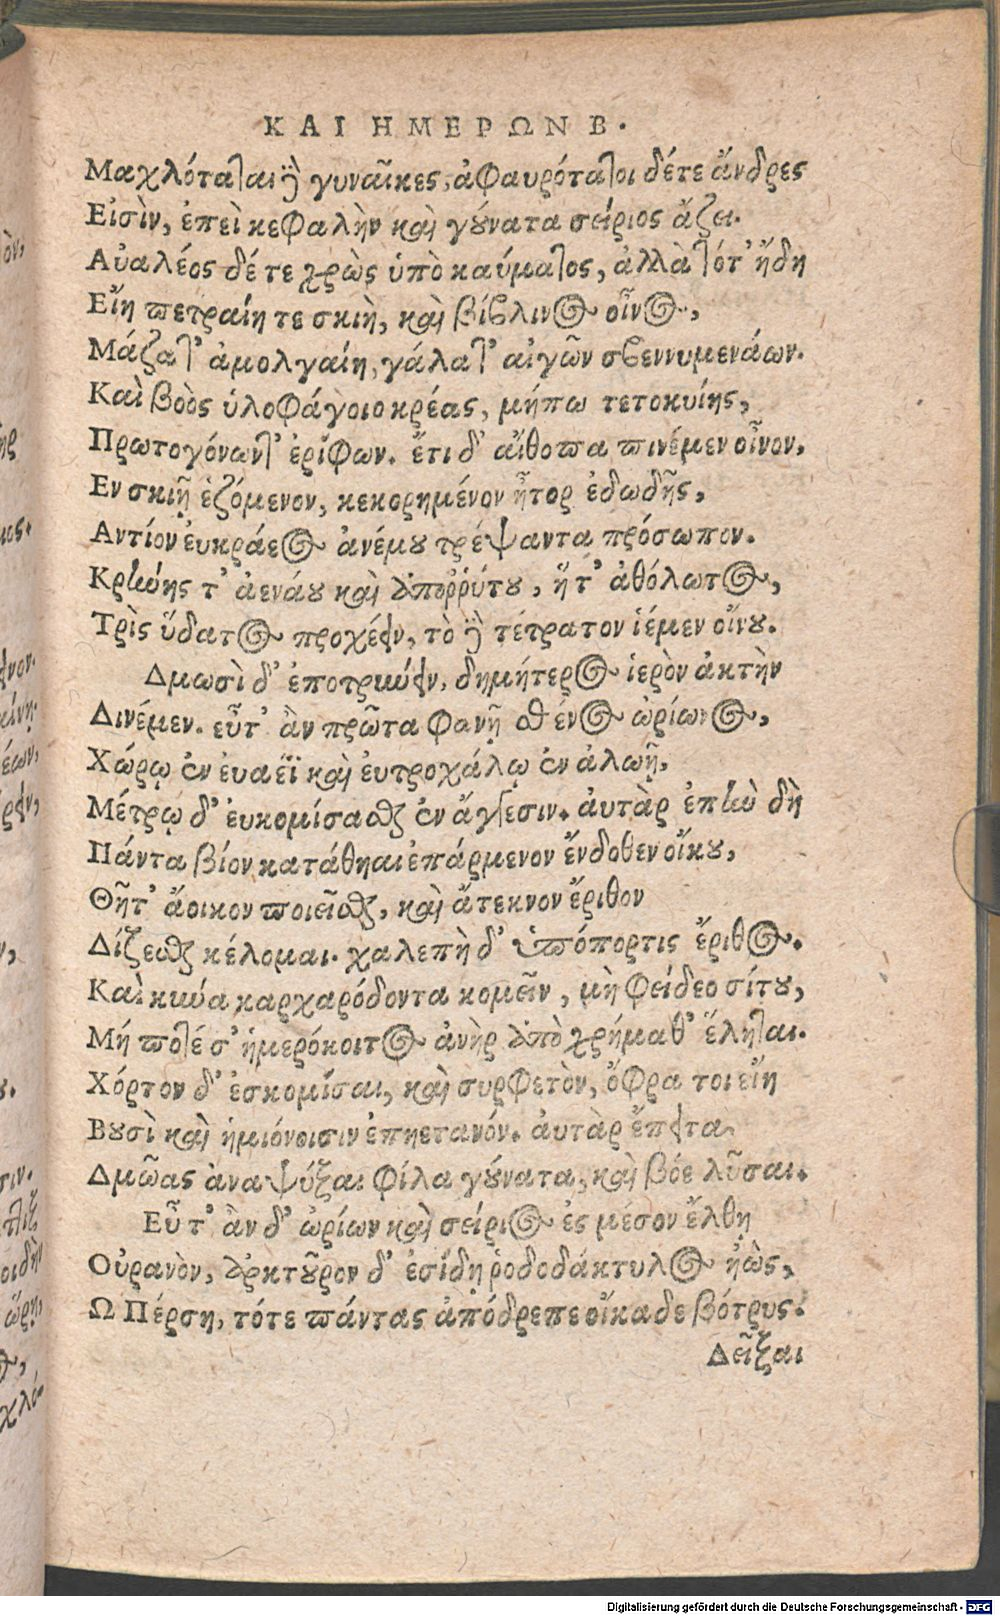 ΚΑΙ ΗΜΕΡΩΝ Β.
Μαχλόταται δὲ γυναῖκες, ἀφαυρότατοι δέ τε ἄνδρες
Εἰσὶν, ἐπεὶ κεφαλὴν καὶ γούνατα σείριος ἄζει.
Αὐαλέος δέ τε χρὼς ὑπὸ καύματος, ἀλλὰ τότ' ἤδη
Εἴη πετραίη τε σκιὴ, καὶ βίβλινος οἶνος,
Μάζα τ' ἀμολγαίη, γάλα τ' αἰγῶν σβεννυμενάων.
Καὶ βοὸς ὑλοφάγοιο κρέας, μήπω τετοκυίης,
Πρωτογόνων τ' ἐρίφων. ἔτι δ' αἴθοπα πινέμεν οἶνον,
Εν σκιῇ ἑζόμενον, κεκορημένον ἦτορ ἐδωδῆς,
Αντίον ἐυκράεος ἀνέμου τρέψαντα πρόσωπον.
Κρήνης τ' ἀενάου καὶ ἀποῤῥύτου, ἥ τ' ἀθόλωτος,
Τρὶς ὕδατος προχέειν, τὸ δὲ τέτρατον ἱέμεν οἴνου.
Δμωσὶ δ' ἐποτρύνειν, δημήτερος ἱερὸν ἀκτὴν
Δινέμεν. εὖτ' ἂν πρῶτα φανῇ σθένος ὠρίωνος,
Χώρῳ ἐν ἐυαέϊ καὶ ἐυτροχάλῳ ἐν ἀλωῇ,
Μέτρῳ δ' ἐυκομίσασθαι ἐν ἄγγεσιν. αὐτὰρ ἐπὴν δὴ
Πάντα βίον κατάθηαι ἐπάρμενον ἔνδοθεν οἴκου,
Θῆτ' ἄοικον ποιεῖσθαι, καὶ ἄτεκνον ἔριθον
Δίζεσθαι κέλομαι. χαλεπὴ δ' ὑπόπορτις ἔριθος.
Καὶ κύνα καρχαρόδοντα κομεῖν, μὴ φείδεο σίτου,
Μή ποτέ σ' ἡμερόκοιτος ἀνὴρ ἀπὸ χρήμαθ' ἕληται.
Χόρτον δ' ἐσκομίσαι, καὶ συρφετὸν, ὄφρα τοι εἴη
Βουσὶ καὶ ἡμιόνοισιν ἐπηετανόν. αὐτὰρ ἔπειτα
Δμῶας ἀναψύξαι φίλα γούνατα, καὶ βόε λῦσαι.
Εὖτ' ἂν δ' ὠρίων καὶ σείριος ἐς μέσον ἔλθῃ
Οὐρανὸν, ἀρκτοῦρον δ' ἐσίδῃ ῥοδοδάκτυλος ἠὼς,
Ω Πέρση, τότε πάντας ἀπόδρεπε οἴκαδε βότρυς.
Δεῖξαι
Digitalisierung gefördert durch die Deutsche Forschungsgemeinschaft - DFG